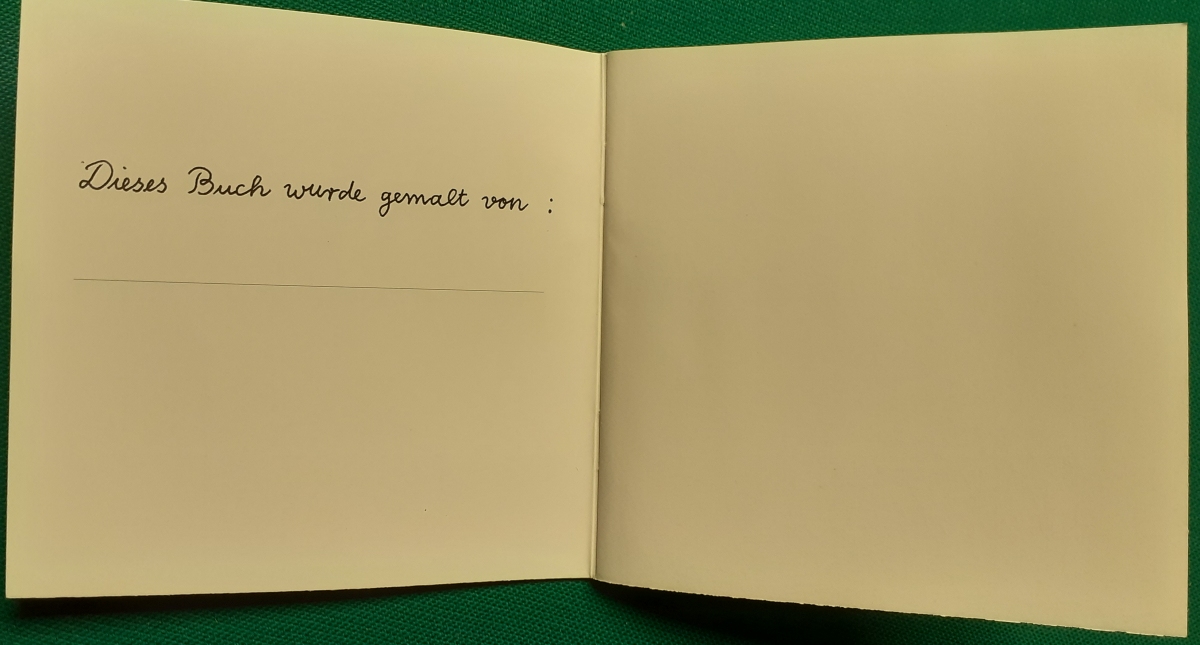 Dieses Buch wurde gemalt von :